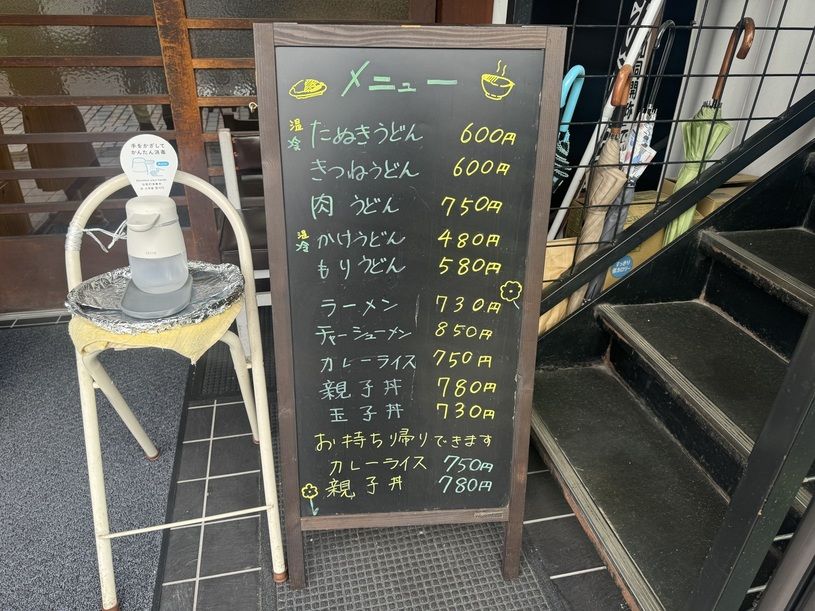 メニュー
温
冷
たぬきうどん 600円
きつねうどん 600円
肉うどん 750円
温
冷
かけうどん 480円
もりうどん 580円
ラーメン 730円
チャーシューメン 850円
カレーライス 750円
親子丼 780円
玉子丼 730円
お持ち帰りできます
カレーライス 750円
親子丼 780円
手をかざして
かんたん消毒